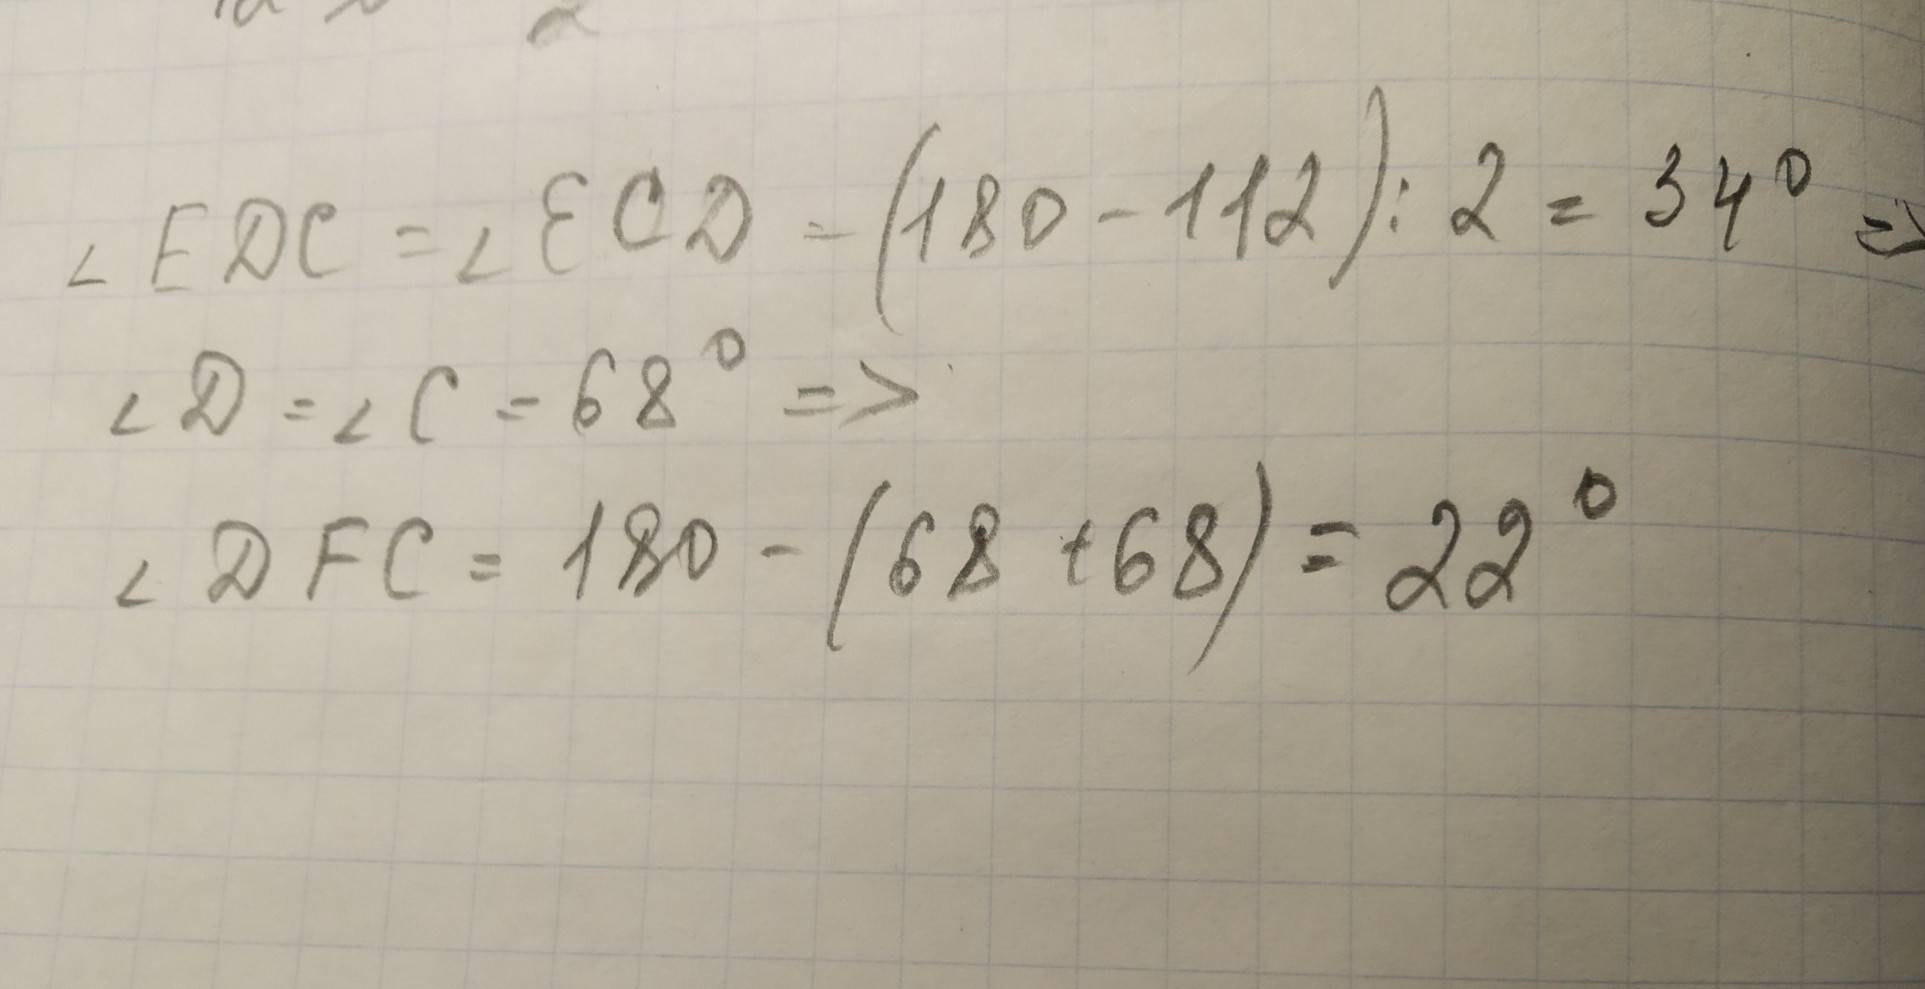 ∠EDC = ∠ECD = (180 - 112) : 2 = 34° =>
∠D = ∠C = 68° =>
∠DFC = 180 - (68 + 68) = 22°